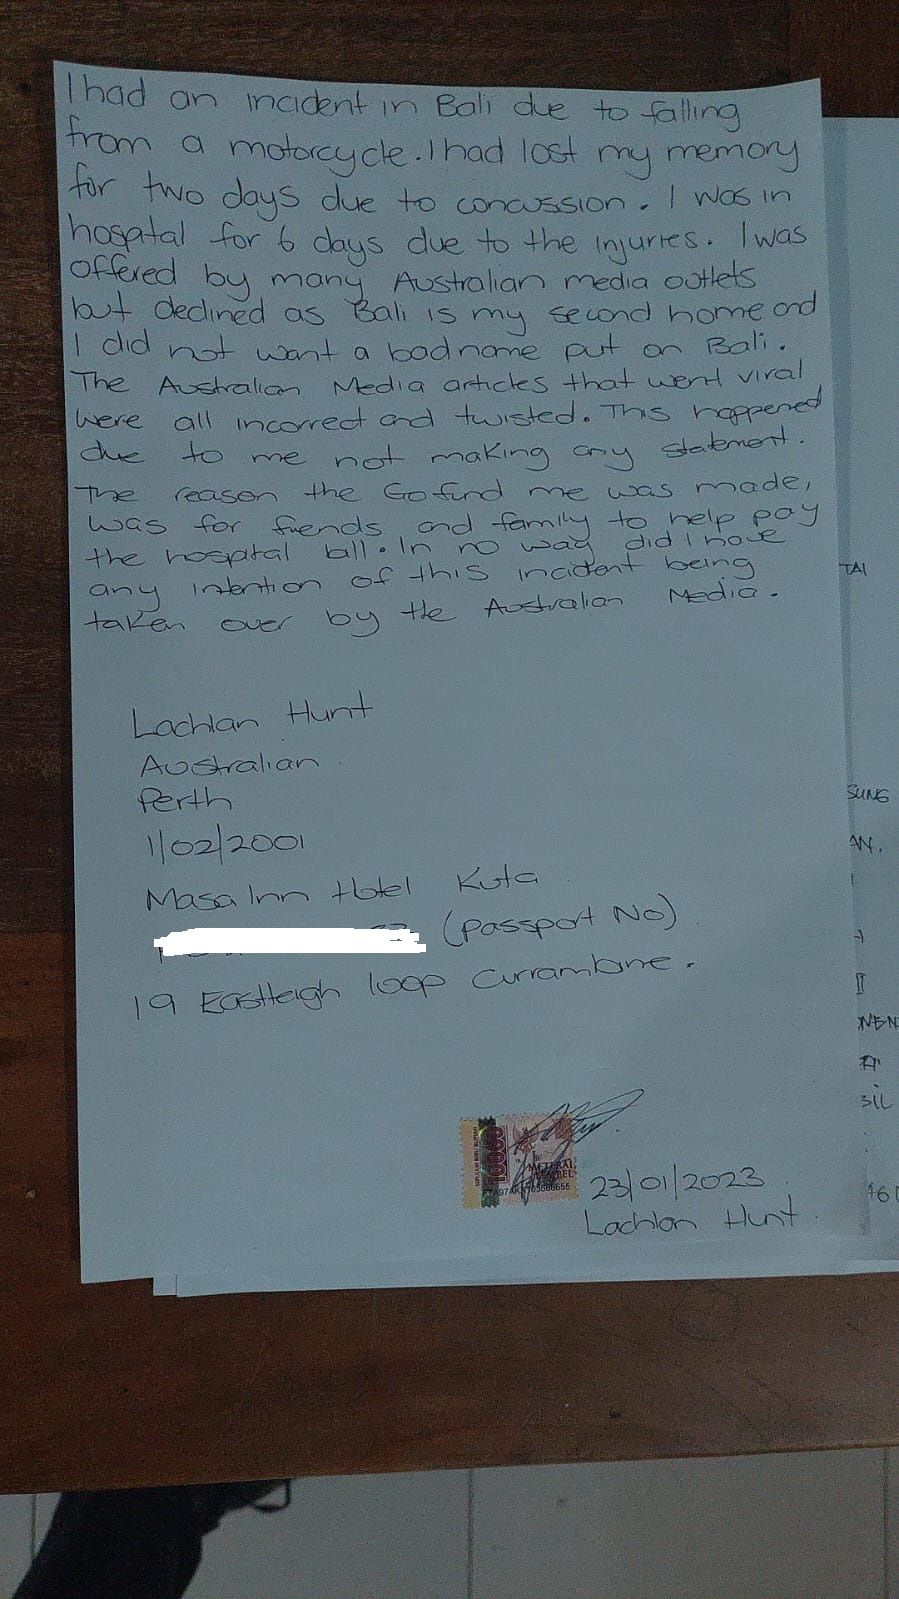 I had an incident in Bali due to falling
from a motorcycle. I had lost my memory
for two days due to concussion. I was in
hospital for 6 days due to the injuries. I was
offered by many Australian media outlets
but declined as Bali is my second home and
I did not want a bad name put on Bali.
The Australian Media articles that went viral
were all incorrect and twisted. This happened
due to me not making any statement.
The reason the Gofund me was made,
was for friends and family to help pay
the hospital bill. In no way did I have
any intention of this incident being
taken over by the Australian Media.
Lachlan Hunt
Australian
Perth
1/02/2001
Masa Inn Hotel Kuta
(Passport No)
19 Eastleigh loop Currambine.
10000
METERAI
TEMPEL
23/01/2023
Lachlan Hunt.
TAI
SUNG
AN.
NEN